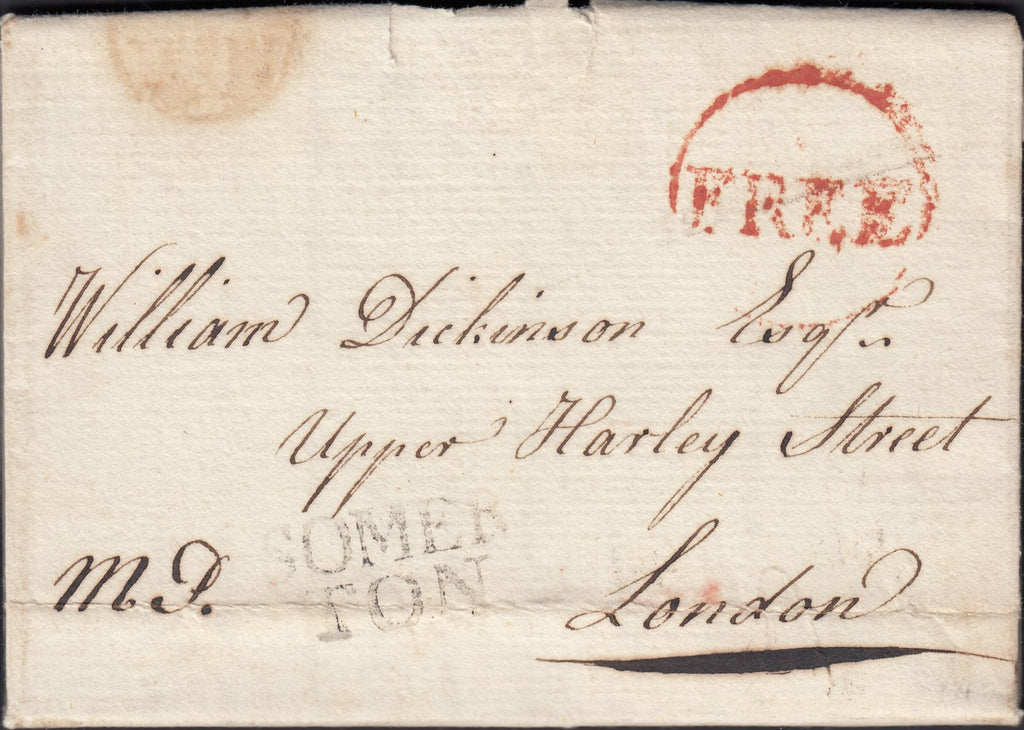 FREE
William Dickinson Esqr.
Upper Harley Street
SOMER
TON
M P.
London